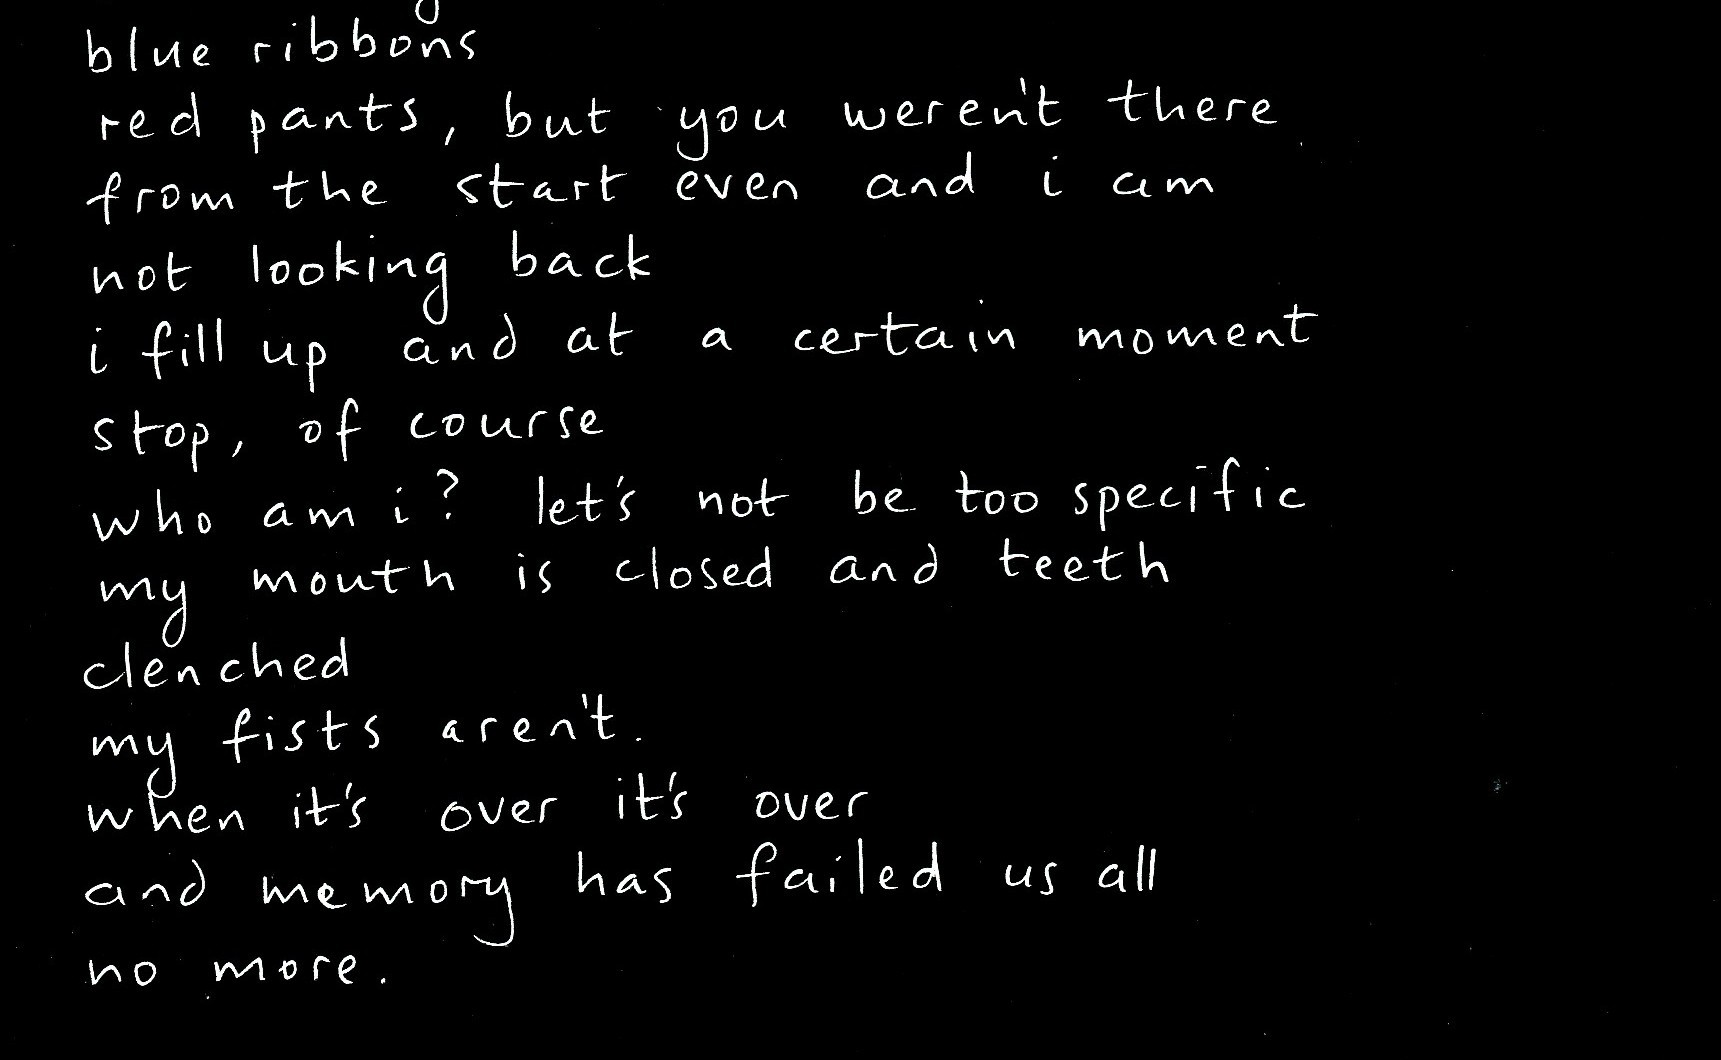 blue ribbons
red pants, but you weren't there
from the start even and i am
not looking back
i fill up and at a certain moment
stop, of course
who am i? let's not be too specific
my mouth is closed and teeth
clenched
my fists aren't.
when it's over it's over
and memory has failed us all
no more.